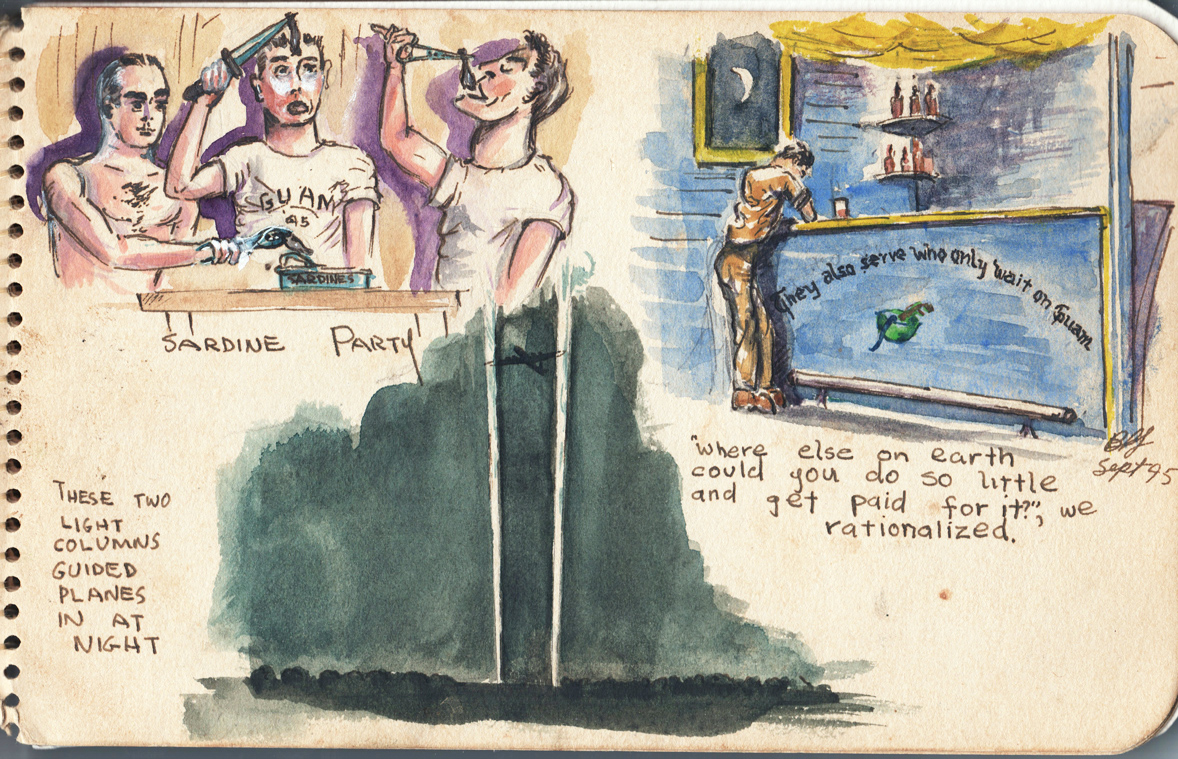 GUAM
45
SARDINES
SARDINE PARTY
They also serve who only wait on Guam
"where else on earth
could you do so little
and get paid for it?", we
rationalized.
Sept 45
THESE TWO
LIGHT
COLUMNS
GUIDED
PLANES
IN AT
NIGHT